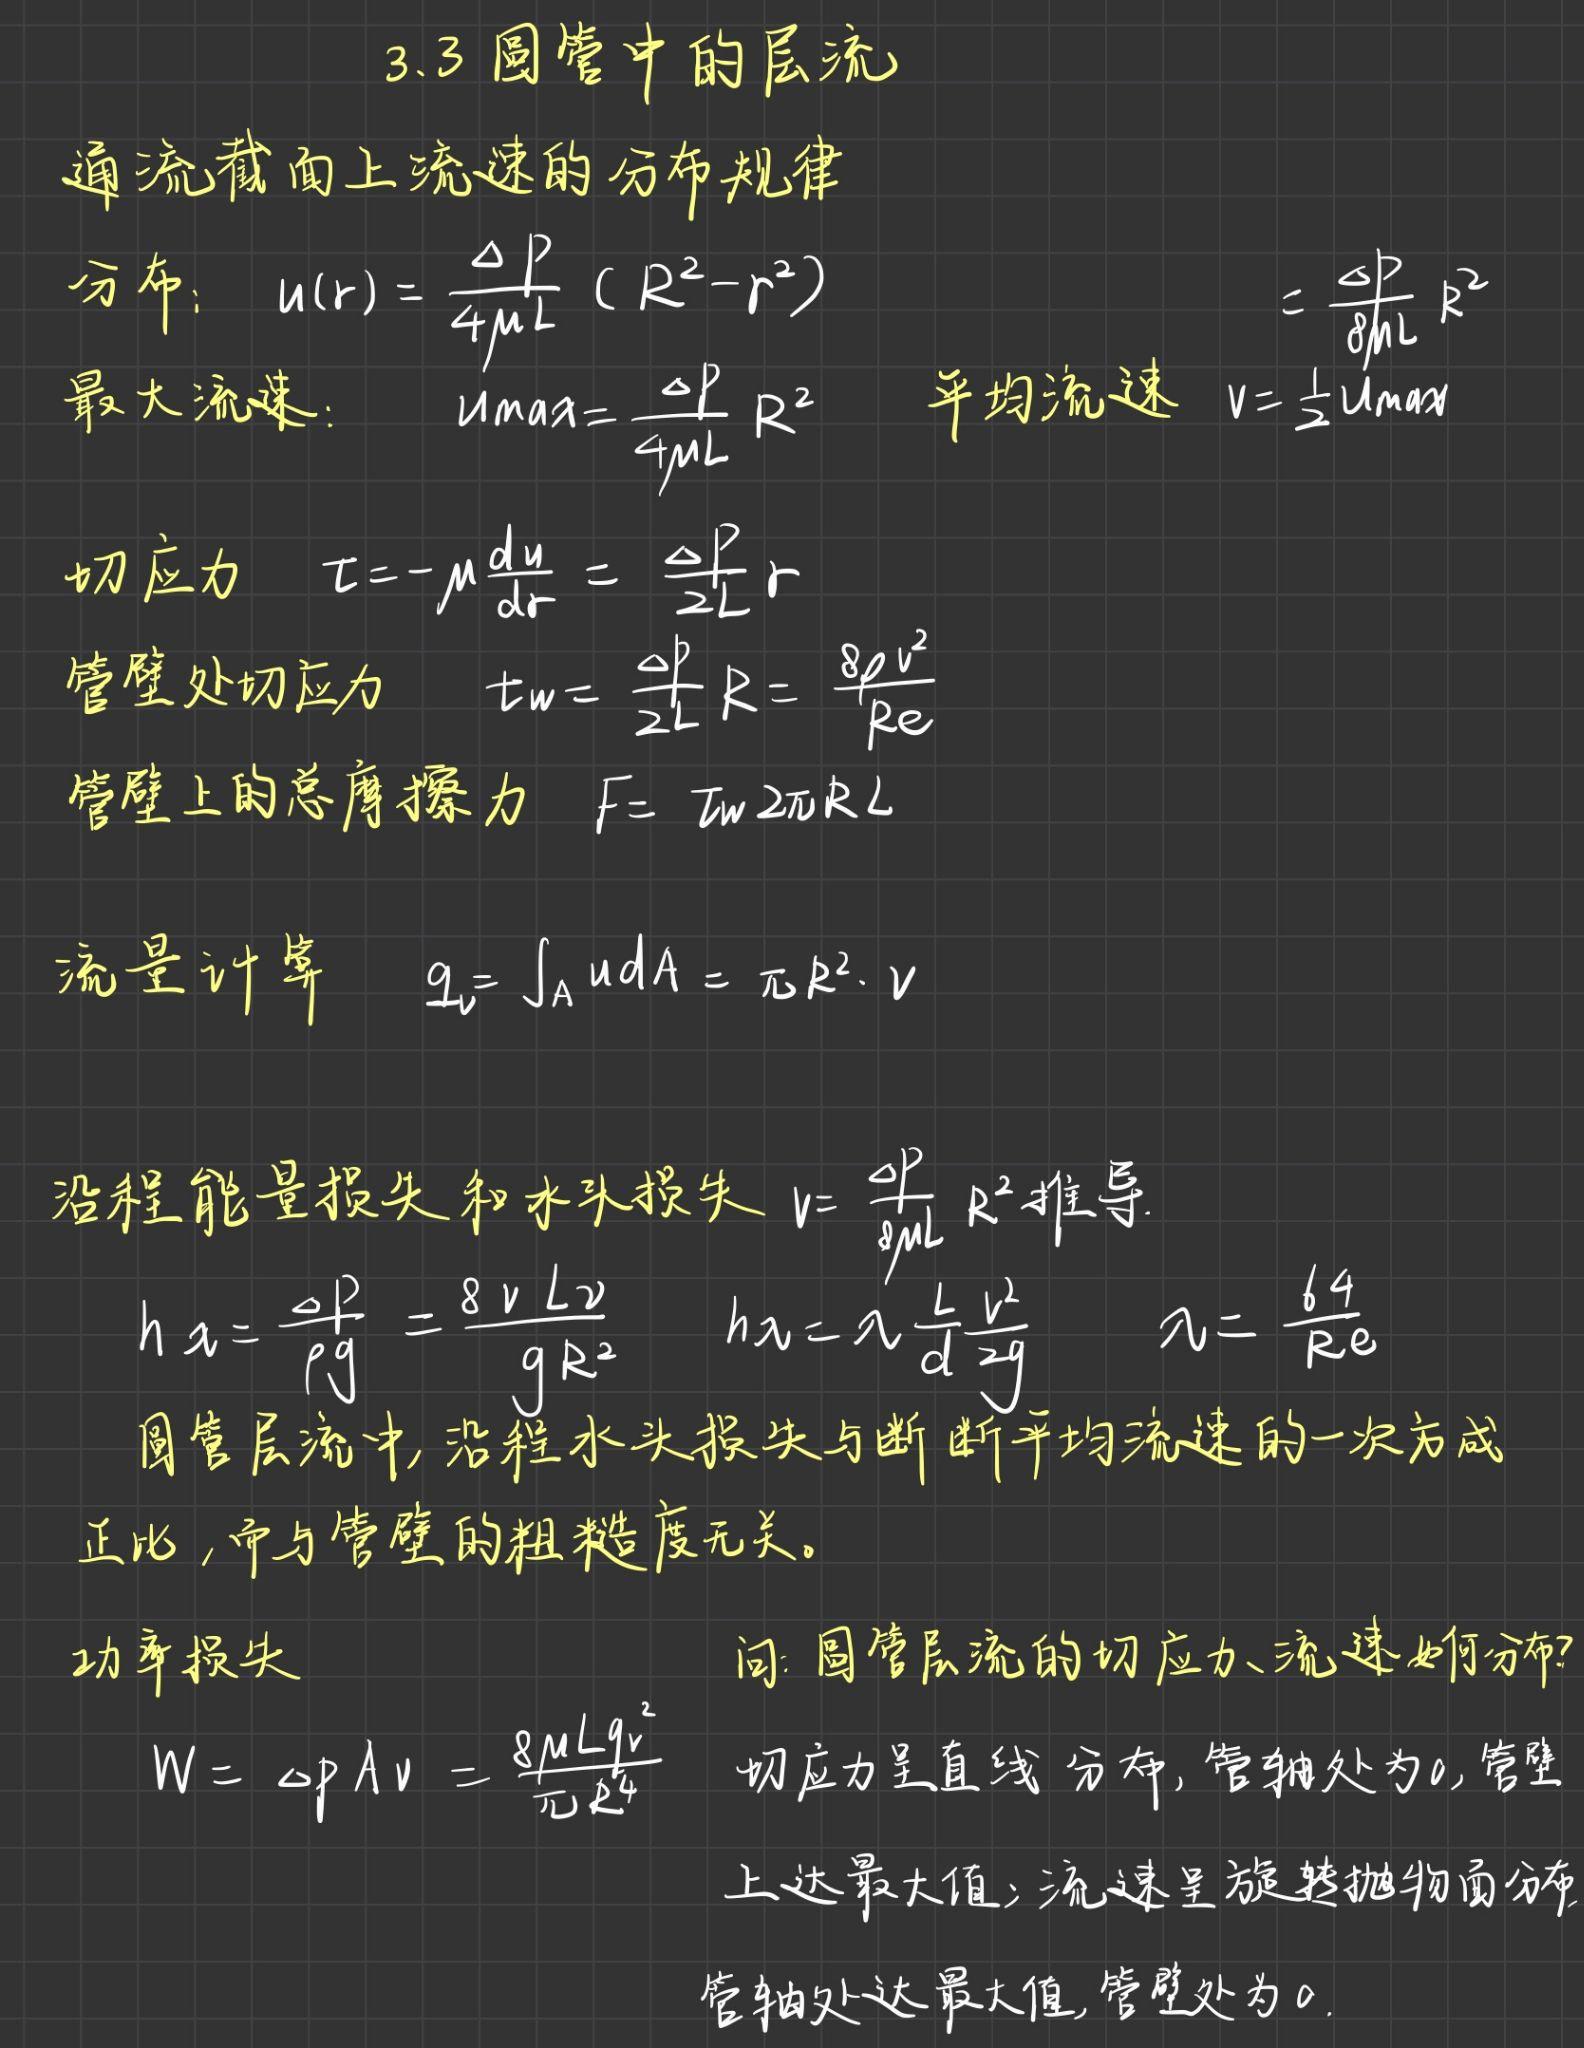 3.3 圆管中的层流
通流截面上流速的分布规律
分布: u(r) = ΔP/4μL (R²-r²) = ΔP/8μL R²
最大流速: umax = ΔP/4μL R² 平均流速 v = 1/2 Umax
切应力 τ = -μ du/dr = ΔP/2L r
管壁处切应力 τw = ΔP/2L R = 8ρv²/Re
管壁上的总摩擦力 F = τw 2πRL
流量计算 qv = ∫A u dA = πR²·v
沿程能量损失和水头损失 v = ΔP/8μL R² 推导.
hλ = ΔP/ρg = 8vLν/gR² hλ = λ L/d v²/2g λ = 64/Re
圆管层流中,沿程水头损失与断断平均流速的一次方成
正比,而与管壁的粗糙度无关。
功率损失 问: 圆管层流的切应力、流速如何分布?
W = ΔpAv = 8μLqv²/πR⁴ 切应力呈直线分布,管轴处为0,管壁
上达最大值;流速呈旋转抛物面分布,
管轴处达最大值,管壁处为0.